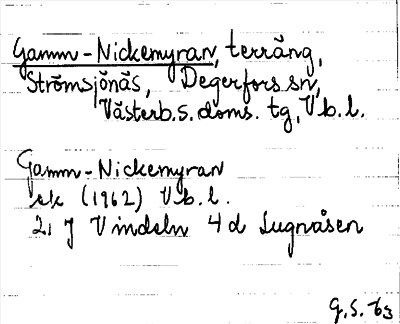 Gamm-Nickemyran, terräng,
Strömsjönäs, Degerfors sn,
Västerb. s. doms. tg, Vb. l.
Gamm-Nickemyran
ek (1962) Vb. l.
21 J Vindeln 4 d Lugnåsen
G.S. 63